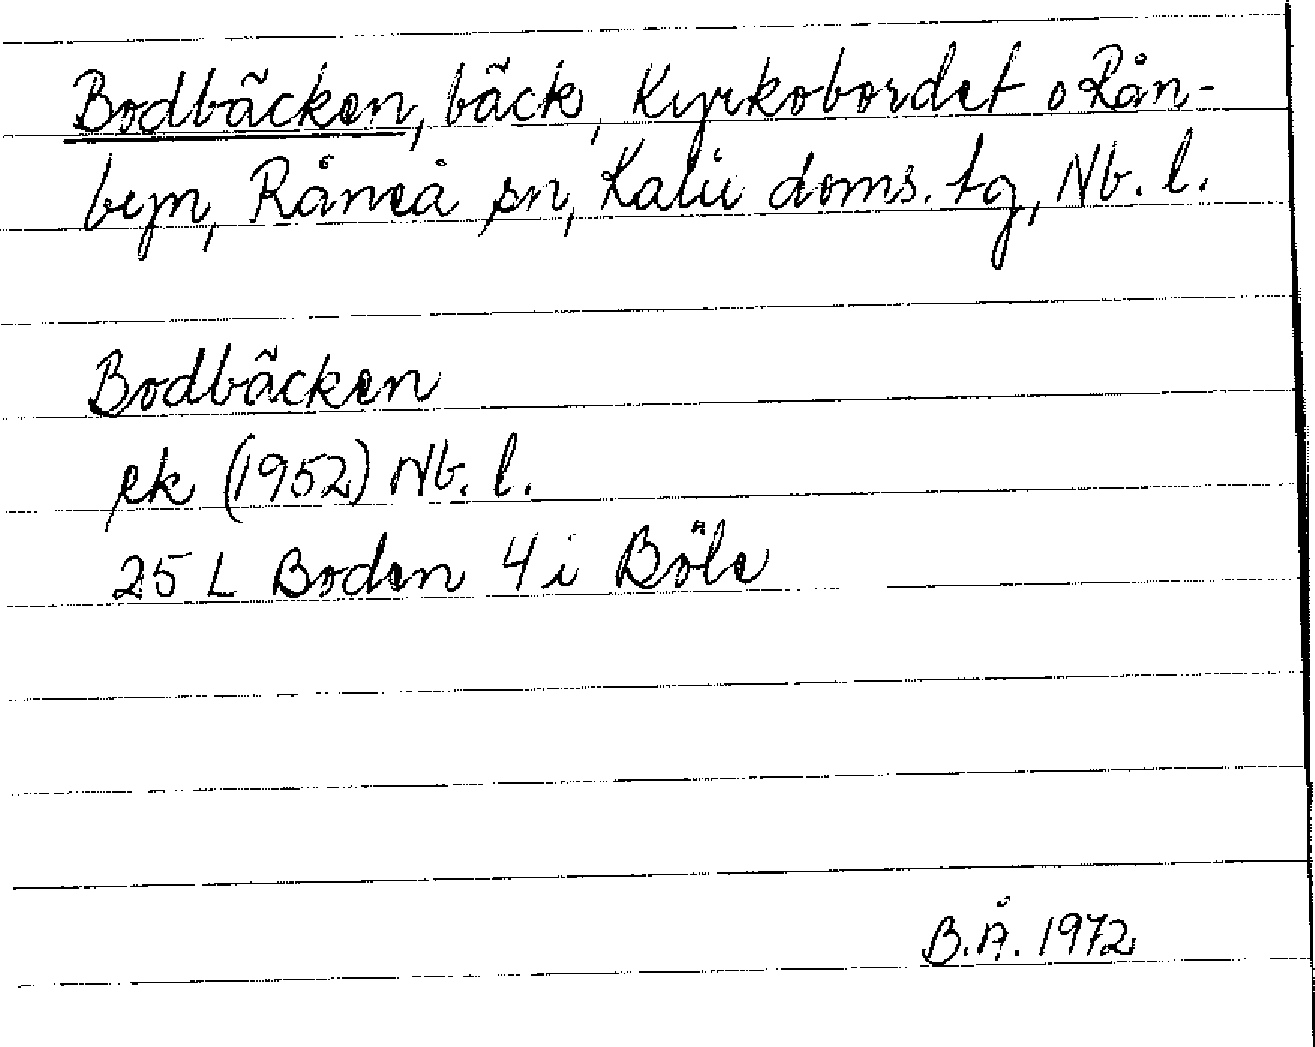 Bodbäcken, bäck, Kyrkobordet o Rån-
byn, Råneå sn, Kalix doms. tg, Nb. l.
Bodbäcken
ek (1952) Nb. l.
25 L Boden 4 i Böle
B.Å. 1972